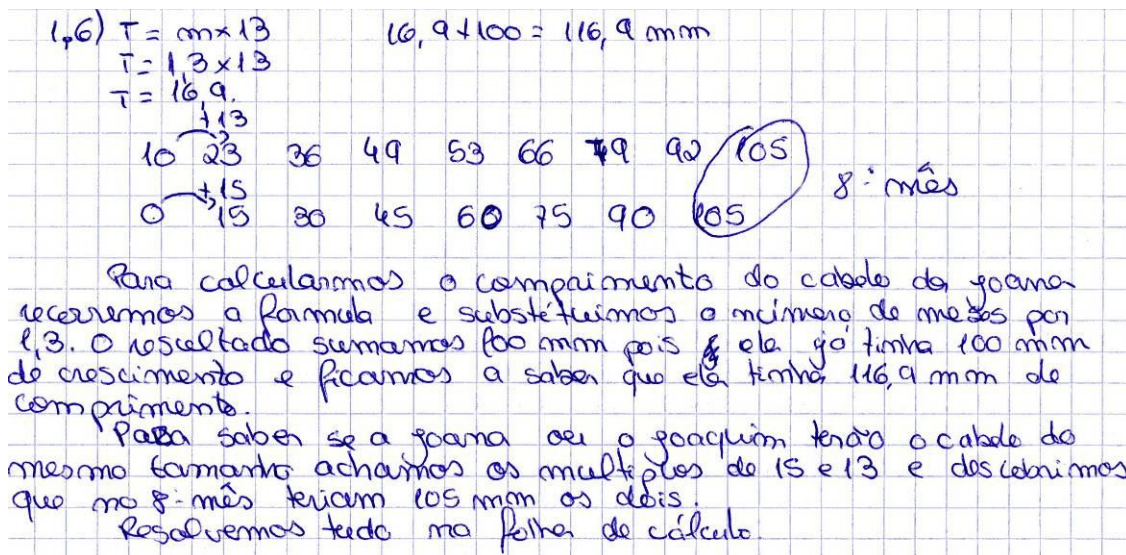 1,6) T = m×13 16,9+100 = 116,9 mm
T = 1,3×13
T = 16,9.
+13
10 23 36 49 53 66 79 92 105
+15 8º mês
0 15 30 45 60 75 90 105
Para calcularmos o compaimento do cabelo da joana
recorremos a formula e substituimos o número de meses por
1,3. O resultado sumamos 100 mm pois ela já tinha 100 mm
de crescimento e ficamos a saber que ela tinha 116,9 mm de
comprimento.
Para saber se a joana ou o joaquim terão o cabelo do
mesmo tamanho achamos os multiplos de 15 e 13 e descobrimos
que no 8º mês teriam 105 mm os dois.
Resolvemos tudo na folha de cálculo.